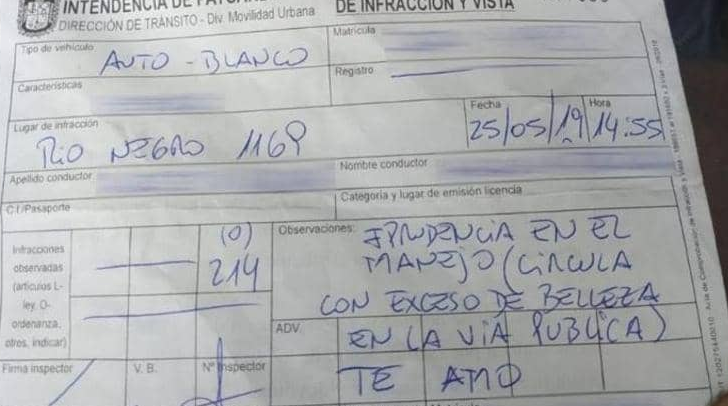 INTENDENCIA DE
DE INFRACCIÓN Y VISTA
DIRECCIÓN DE TRÁNSITO - Div. Movilidad Urbana
Tipo de vehículo
AUTO - BLANCO
Matrícula
Características
Registro
Lugar de infracción
RIO NEGRO 1169
Fecha
25/05/19
Hora
14:55
Apellido conductor
Nombre conductor
C.I./Pasaporte
Categoria y lugar de emisión licencia
Infracciones
observadas
(artículos L-
ley, O-
ordenanza,
otros, indicar)
(O)
214
Observaciones:
IPRUDENCIA EN EL
MANEJO (CIRCULA
CON EXCESO DE BELLEZA
ADV.
EN LA VIA PUBLICA)
TE AMO
Firma inspector
V. B.
Nº Inspector